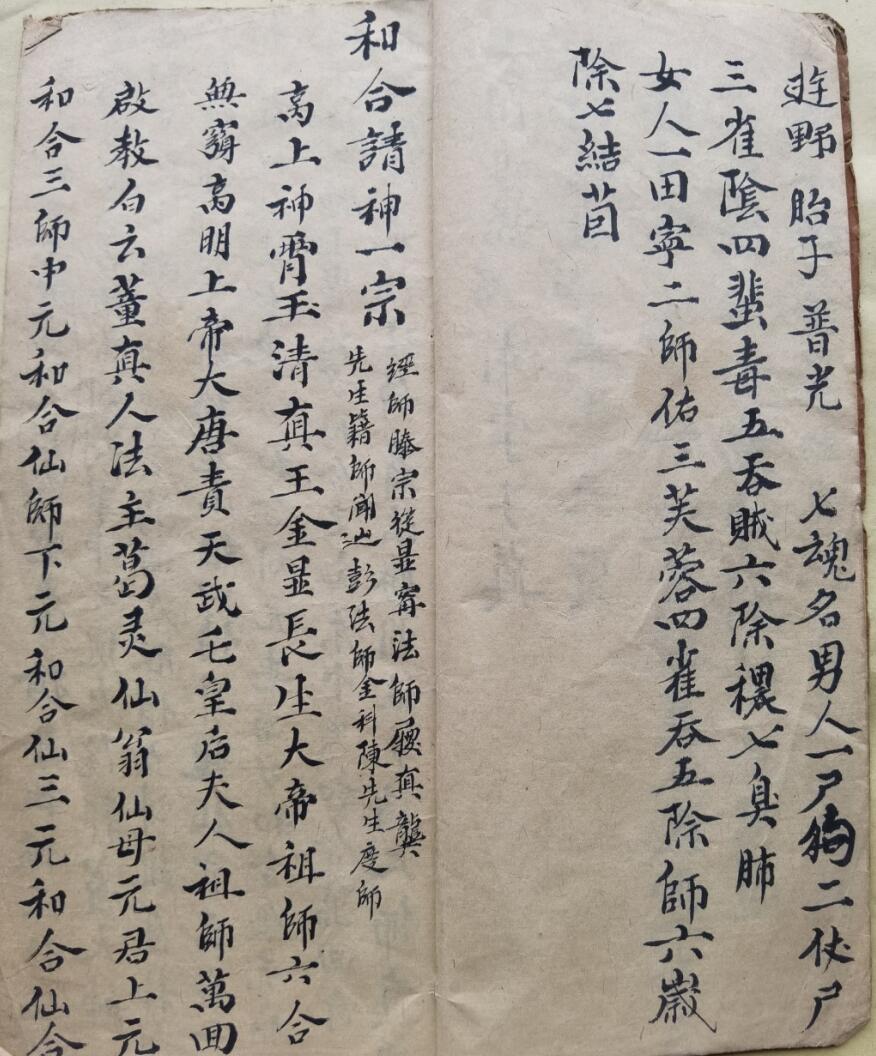 遊野 胎子 普光 七魂名男人一尸狗二伏尸
三雀陰四蜚毒五吞賊六除穢七臭肺
女人一田寧二師佑三芙蓉四雀吞五除師六嵗
除七結苗
和合請神一宗
經師滕宗從显寗法師履真龔
先生籍師聞 彭法師金科陳先生度師
高上神霄玉清真王金显長生大帝祖師六合
無窮高明上帝大唐責天武屯皇后夫人祖師萬回
啟教白云董真人法主葛灵仙翁仙母元君上元
和合三師中元和合仙師下元和合仙三元和合仙合